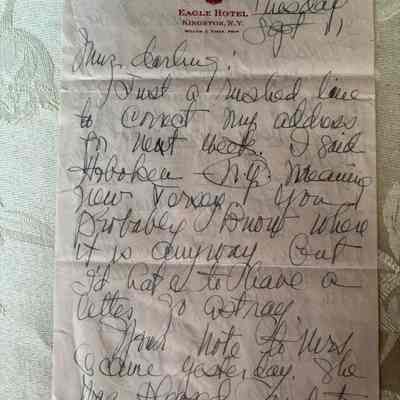 EAGLE HOTEL
KINGSTON, N.Y.
Tuesday
Sept 11
My darling:
Just a rushed line
to correct my address
for next week. I said
Hoboken N.Y. meaning
New Jersey. You
probably know where
it is anyway but
I'd hate to have a
letter go astray.
Your note to Mrs
came yesterday. She
was